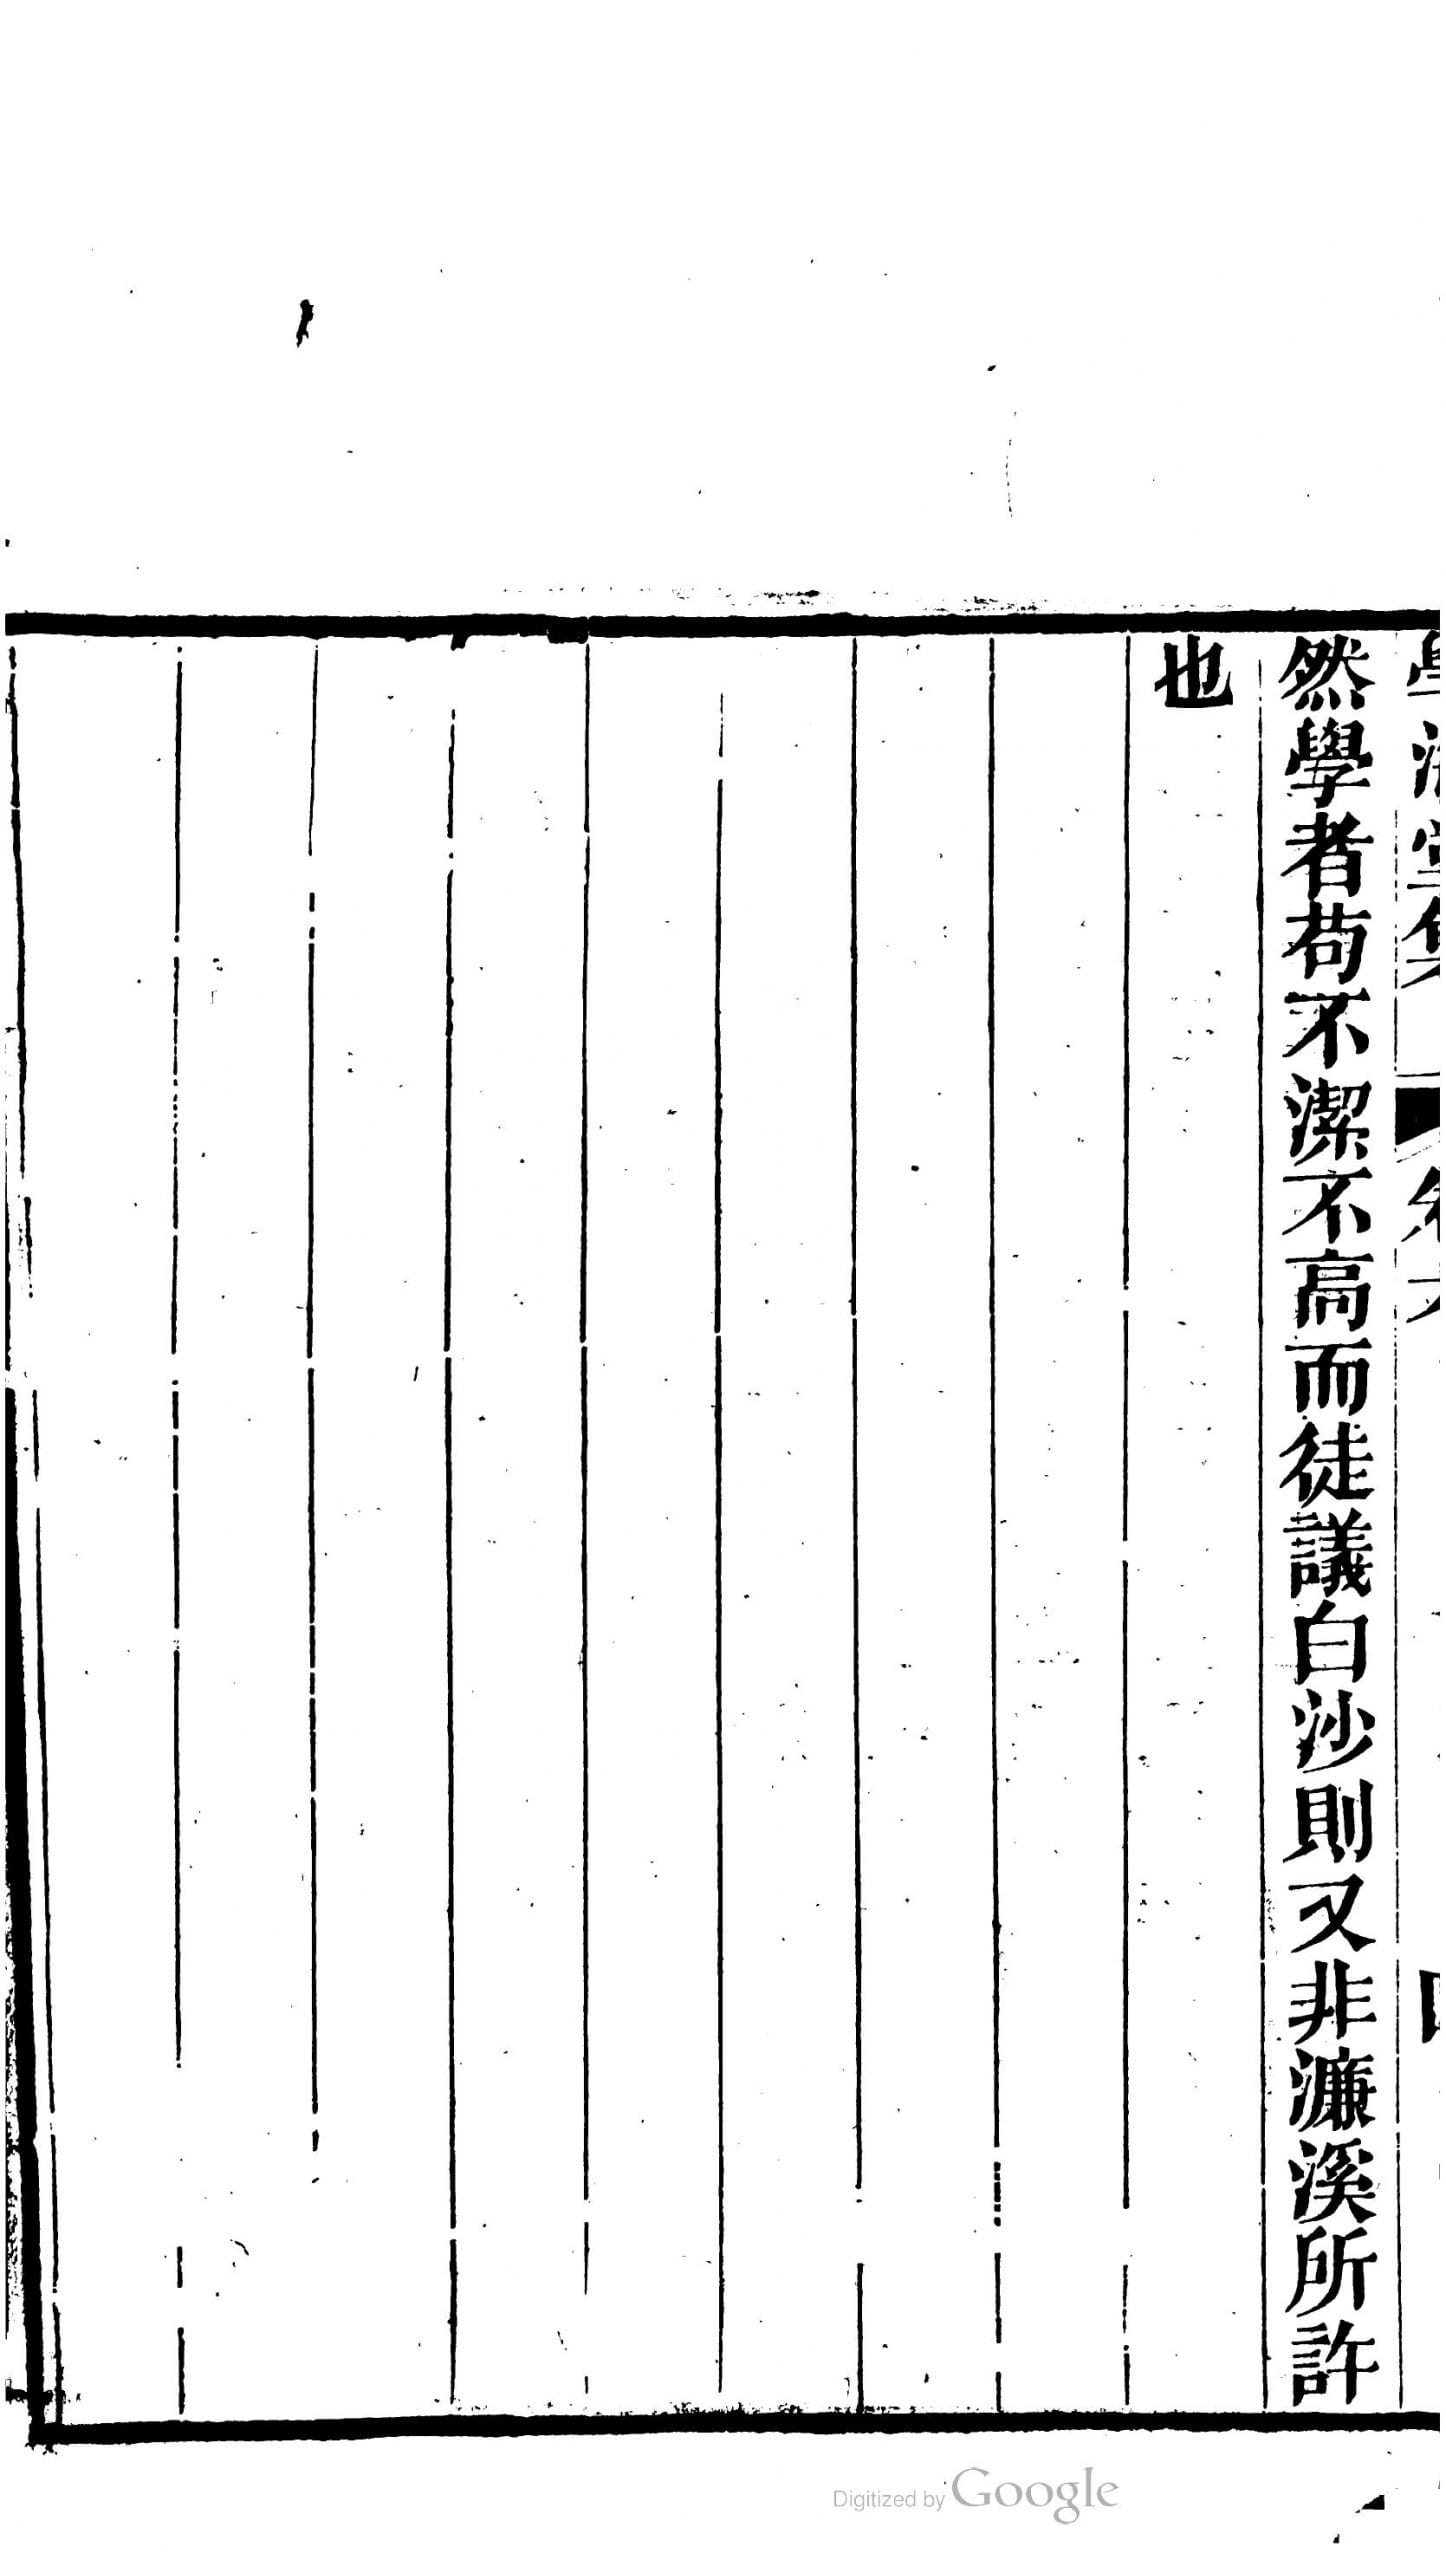 然學者苟不潔不高而徒議白沙則又非濂溪所許
也
Digitized by Google